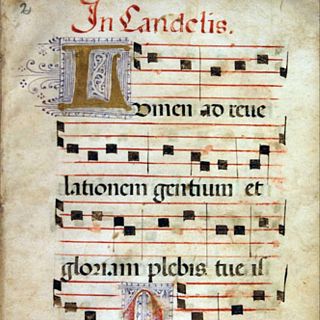 2
In Candelis.
LVmen ad reue
lationem gentium et
gloriam plebis tue is